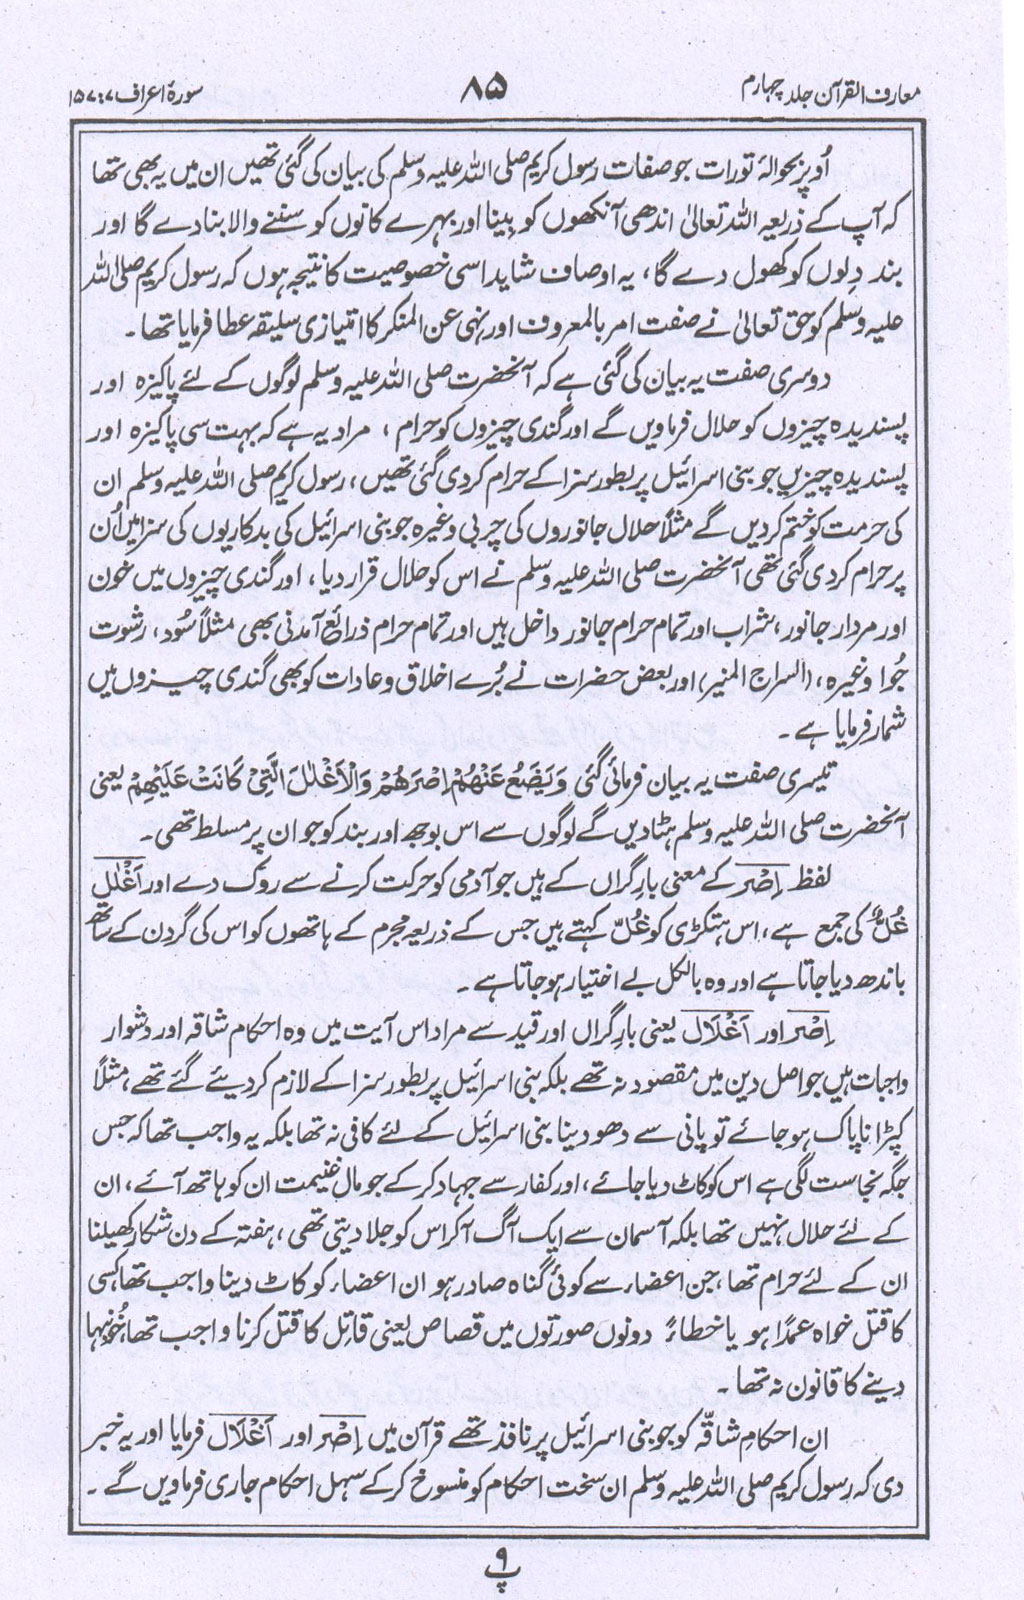 معارف القرآن جلد چہارم
۸۵
سورۂ اعراف ۷: ۱۵۷
اُوپر بحوالۂ تورات جو صفات رسول کریم صلی اللہ علیہ وسلم کی بیان کی گئی تھیں ان میں یہ بھی تھا
کہ آپ کے ذریعہ اللہ تعالیٰ اندھی آنکھوں کو بینا اور بہرے کانوں کو سننے والا بنا دے گا اور
بند دِلوں کو کھول دے گا، یہ اوصاف شاید اسی خصوصیت کا نتیجہ ہوں کہ رسول کریم صلی اللہ
علیہ وسلم کو حق تعالیٰ نے صفت امر بالمعروف اور نہی عن المنکر کا امتیازی سلیقہ عطا فرمایا تھا۔
دوسری صفت یہ بیان کی گئی ہے کہ آنحضرت صلی اللہ علیہ وسلم لوگوں کے لئے پاکیزہ اور
پسندیدہ چیزوں کو حلال فرماویں گے اور گندی چیزوں کو حرام، مراد یہ ہے کہ بہت سی پاکیزہ اور
پسندیدہ چیزیں جو بنی اسرائیل پر بطور سزا کے حرام کر دی گئی تھیں، رسول کریم صلی اللہ علیہ وسلم ان
کی حرمت کو ختم کر دیں گے مثلاً حلال جانوروں کی چربی وغیرہ جو بنی اسرائیل کی بدکاریوں کی سزا میں اُن
پر حرام کر دی گئی تھی آنحضرت صلی اللہ علیہ وسلم نے اس کو حلال قرار دیا، اور گندی چیزوں میں خون
اور مردار جانور، شراب اور تمام حرام جانور داخل ہیں اور تمام حرام ذرائع آمدنی بھی مثلاً سُود، رشوت
جُوا وغیرہ، (السراج المنیر) اور بعض حضرات نے بُرے اخلاق و عادات کو بھی گندی چیزوں میں
شمار فرمایا ہے۔
تیسری صفت یہ بیان فرمائی گئی وَیَضَعُ عَنْهُمْ اِصْرَهُمْ وَالْاَغْلٰلَ الَّتِیْ كَانَتْ عَلَیْهِمْ یعنی
آنحضرت صلی اللہ علیہ وسلم ہٹا دیں گے لوگوں سے اس بوجھ اور بند کو جو ان پر مسلط تھی۔
لفظ اِصْر کے معنی بارِ گراں کے ہیں جو آدمی کو حرکت کرنے سے روک دے اور اَغْلٰلَ
غُلٌّ کی جمع ہے، اس ہتکڑی کو غُلّ کہتے ہیں جس کے ذریعہ مجرم کے ہاتھوں کو اس کی گردن کے ساتھ
باندھ دیا جاتا ہے اور وہ بالکل بے اختیار ہو جاتا ہے۔
اِصْر اور اَغْلَال یعنی بارِ گراں اور قید سے مراد اس آیت میں وہ احکام شاقہ اور دشوار
واجبات ہیں جو اصل دین میں مقصود نہ تھے بلکہ بنی اسرائیل پر بطور سزا کے لازم کر دیئے گئے تھے، مثلاً
کپڑا ناپاک ہو جائے تو پانی سے دھو دینا بنی اسرائیل کے لئے کافی نہ تھا بلکہ یہ واجب تھا کہ جس
جگہ نجاست لگی ہے اس کو کاٹ دیا جائے، اور کفار سے جہاد کر کے جو مال غنیمت ان کو ہاتھ آئے، ان
کے لئے حلال نہیں تھا بلکہ آسمان سے ایک آگ آکر اس کو جلا دیتی تھی، ہفتہ کے دن شکار کھیلنا
ان کے لئے حرام تھا، جن اعضاء سے کوئی گناہ صادر ہو ان اعضاء کو کاٹ دینا واجب تھا کسی
کا قتل خواہ عمداً ہو یا خطاءً دونوں صورتوں میں قصاص یعنی قاتل کا قتل کرنا واجب تھا، خُونبہا
دینے کا قانون نہ تھا۔
ان احکامِ شاقّہ کو جو بنی اسرائیل پر نافذ تھے قرآن میں اِصْر اور اَغْلَال فرمایا اور یہ خبر
دی کہ رسول کریم صلی اللہ علیہ وسلم ان سخت احکام کو منسوخ کر کے سہل احکام جاری فرماویں گے۔
پ ۹